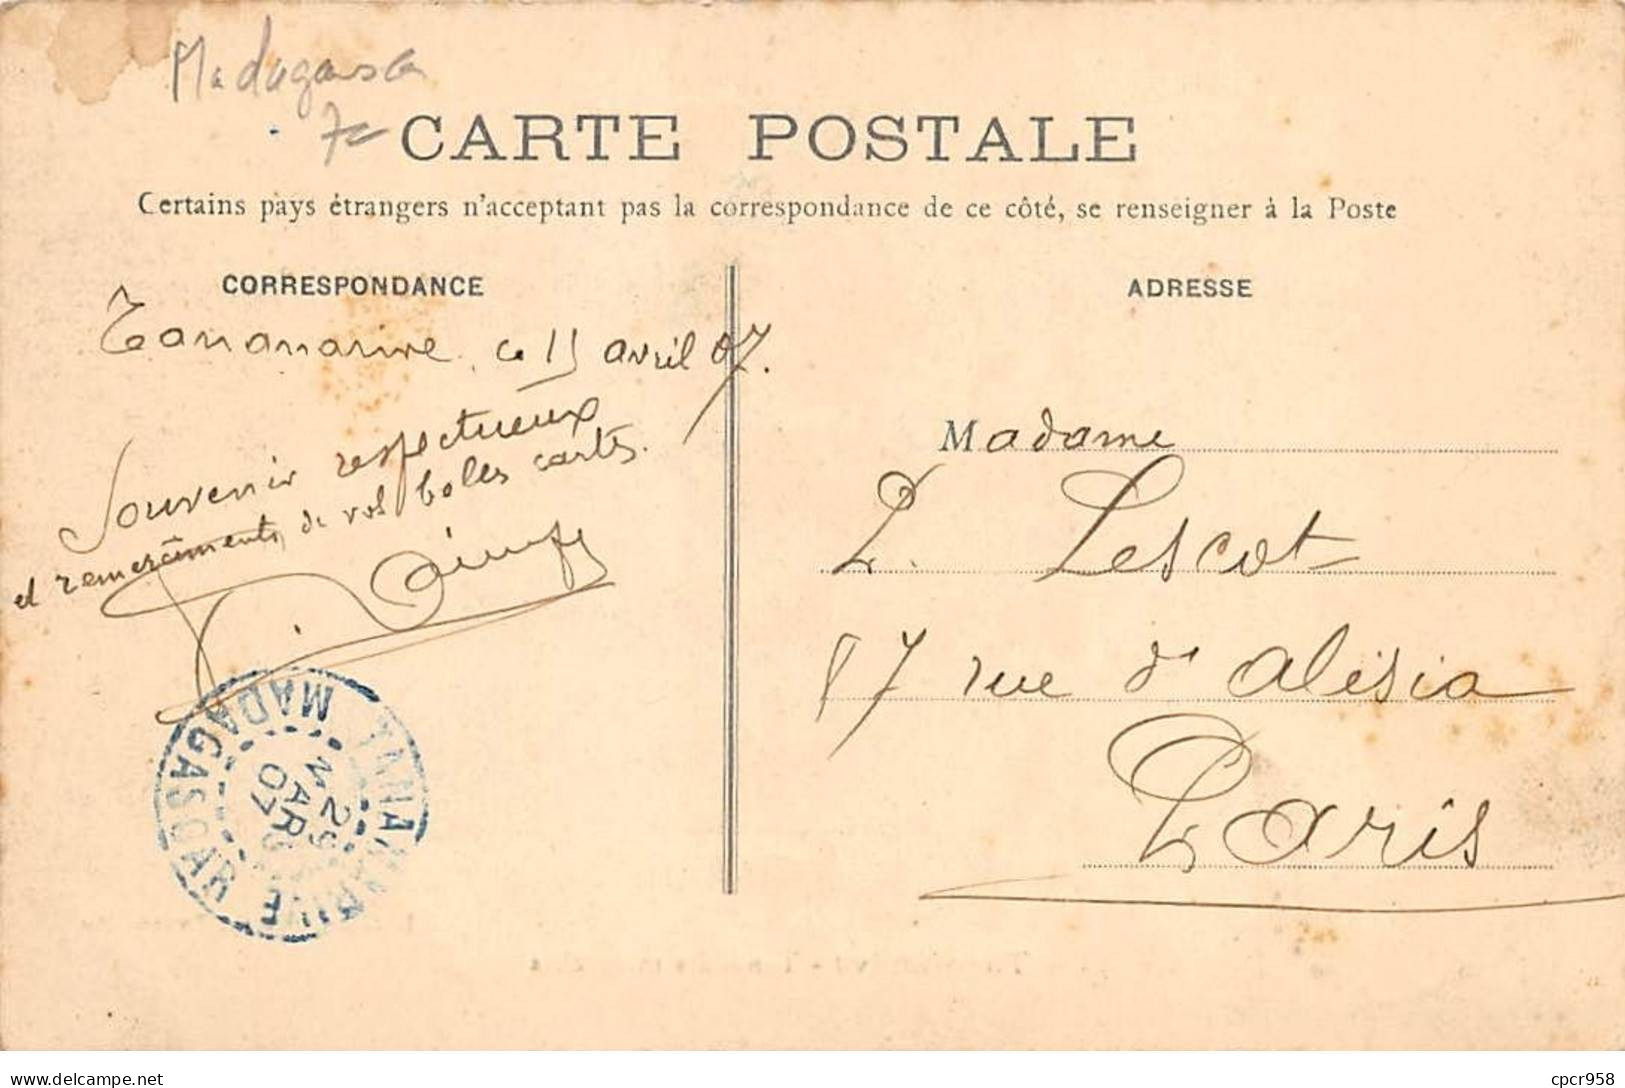 Madagascar
CARTE POSTALE
Certains pays étrangers n'acceptant pas la correspondance de ce côté, se renseigner à la Poste
CORRESPONDANCE
Tananarive, ce 15 avril 07.
Souvenir respectueux
et remercîments de vos belles cartes.
ADRESSE
Madame
L. Lescot
87 rue d'Alésia
Paris
TANANARIVE MADAGASCAR
29
MARS
07
delcampe.net
cpcr958